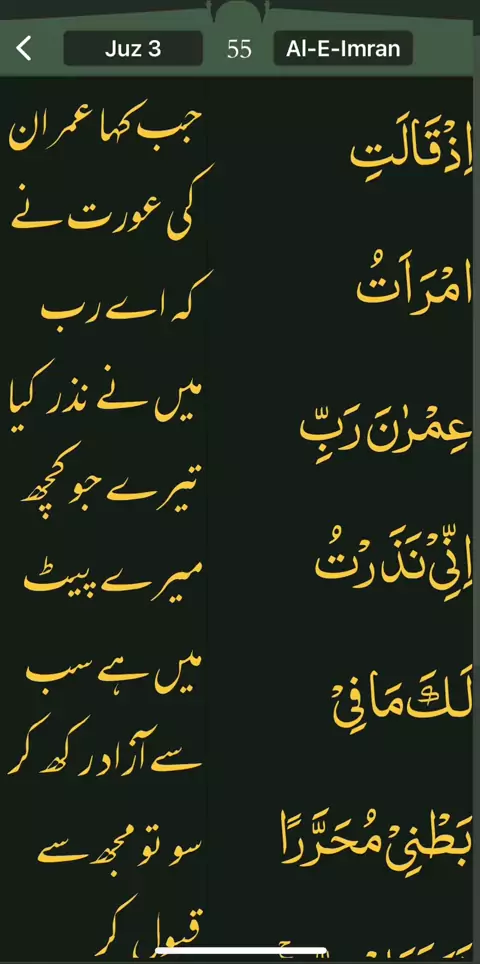 Juz 3
55
Al-E-Imran
اِذْقَالَتِ
امْرَاَتُ
عِمْرٰنَ رَبِّ
اِنِّیْ نَذَرْتُ
لَكَ مَا فِیْ
بَطْنِیْ مُحَرَّرًا
جب کہا عمران
کی عورت نے
کہ اے رب
میں نے نذر کیا
تیرے جو کچھ
میرے پیٹ
میں ہے سب
سے آزاد رکھ کر
سو تو مجھ سے
قبول کر